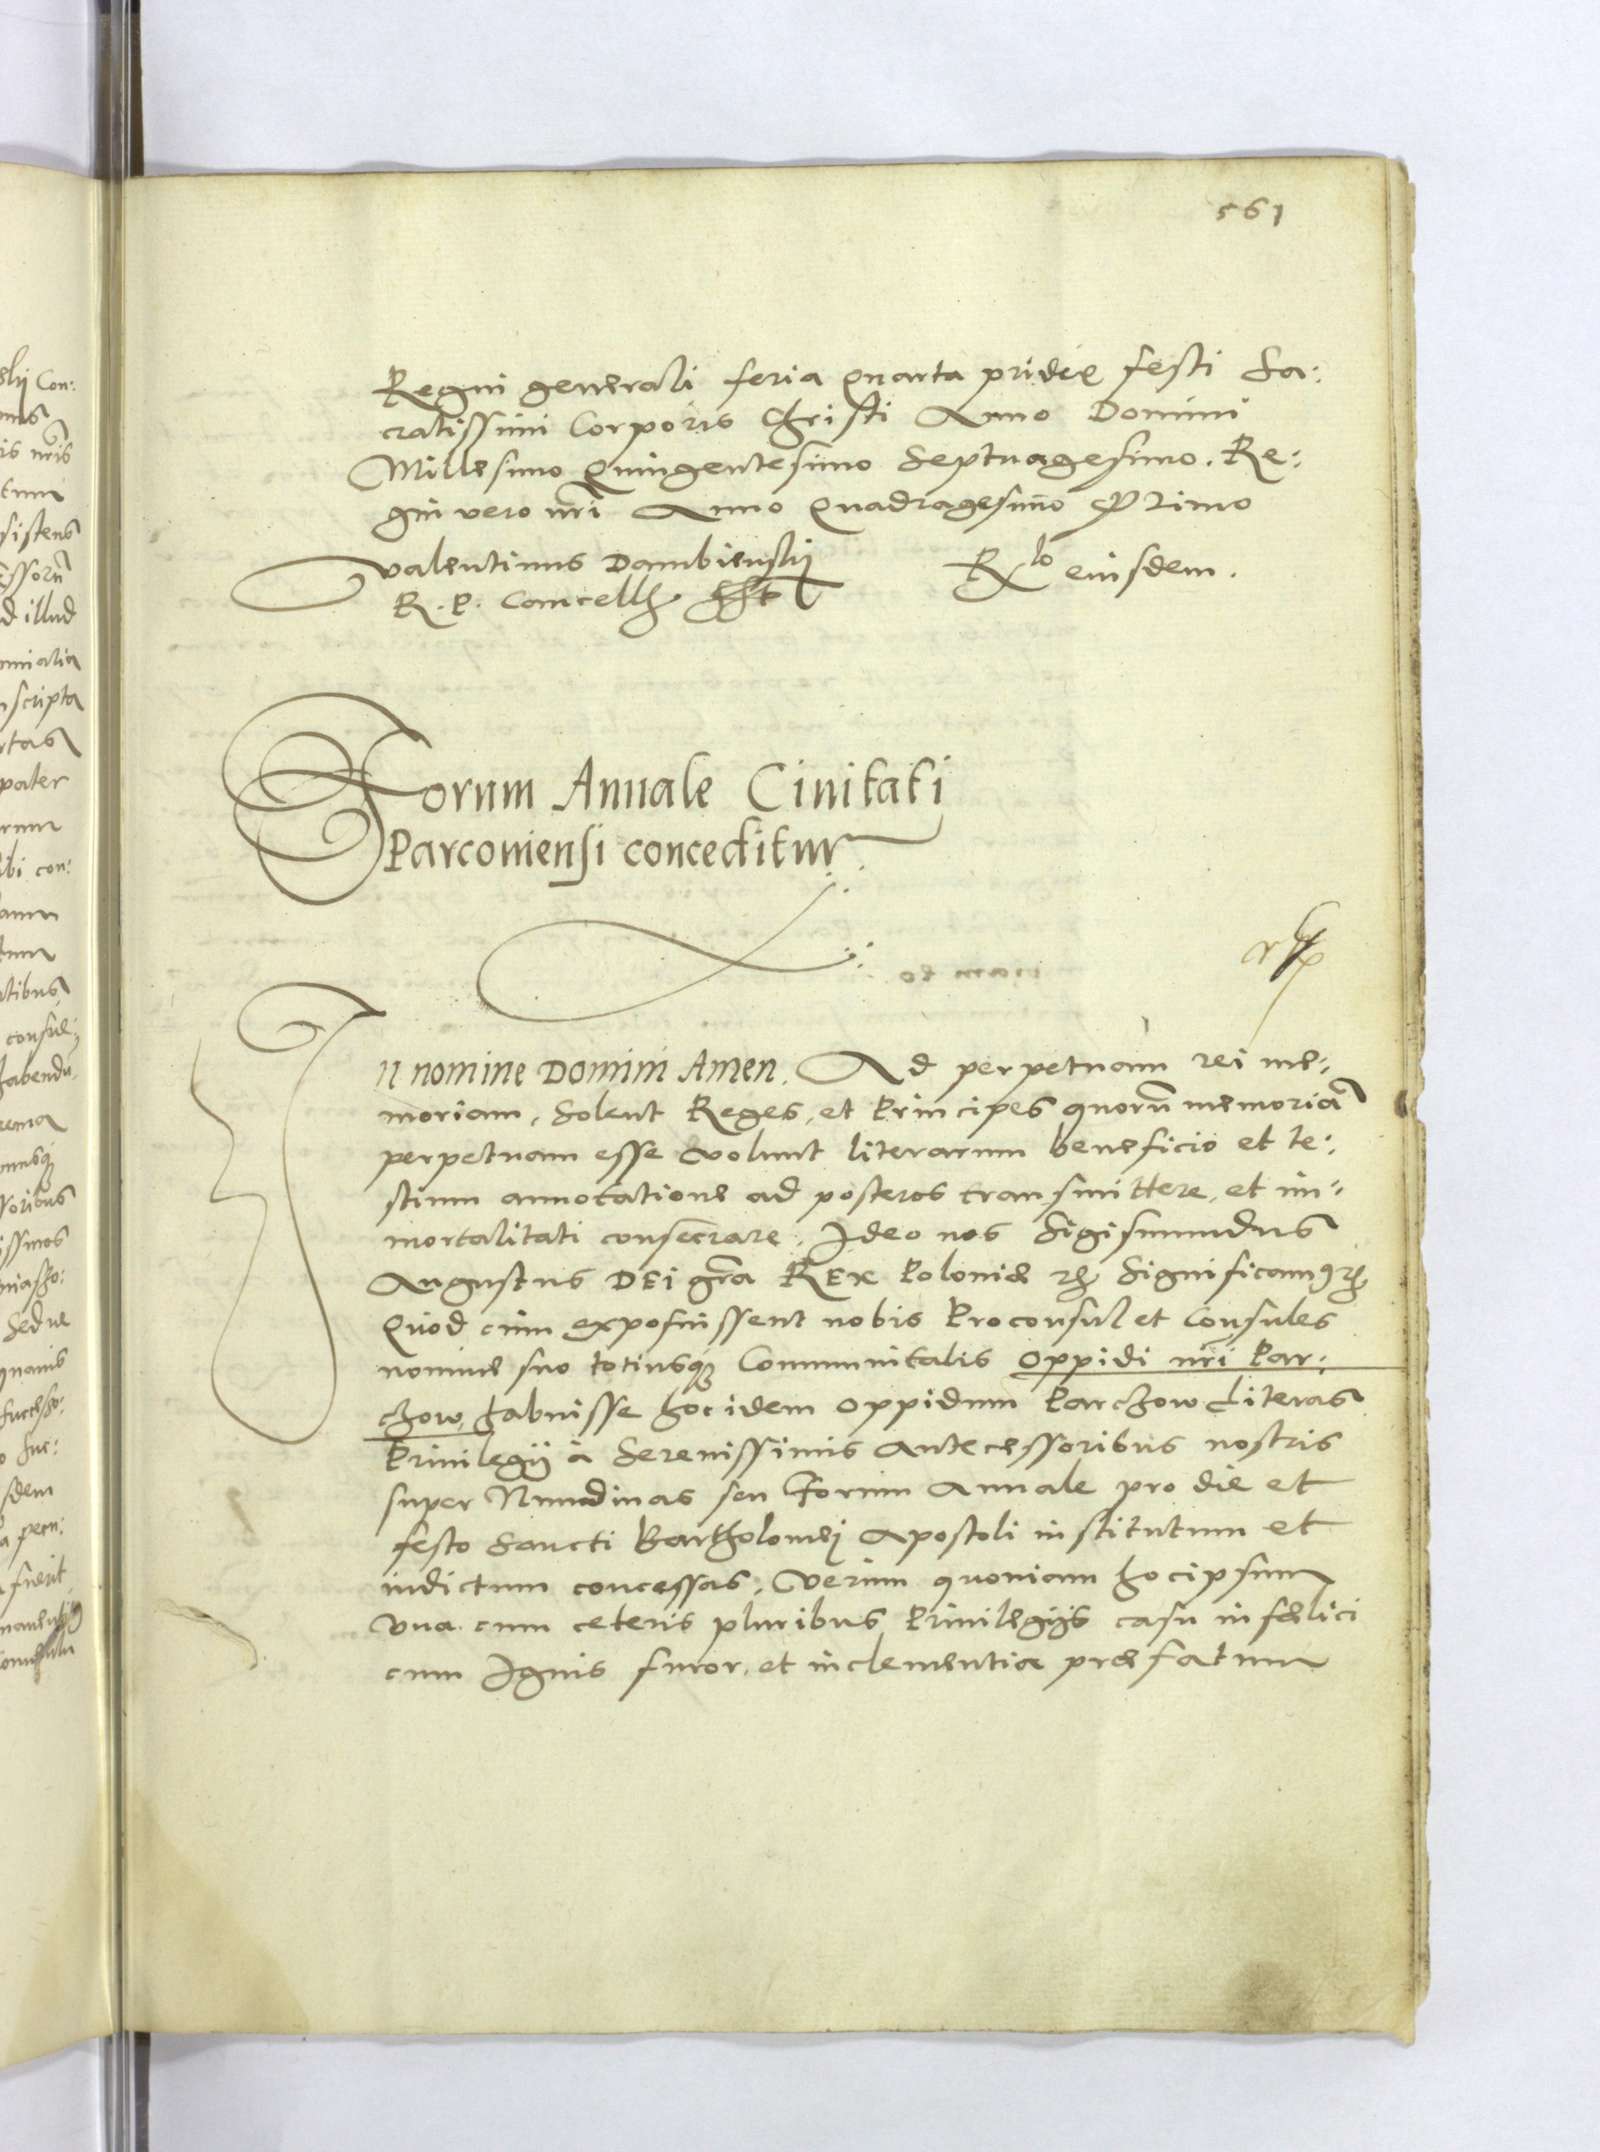 561
Regni generali feria quarta pridie festi Sa:
cratissimi Corporis Christi Anno Domini
Millesimo Quingentesimo Septuagesimo. Re:
gni vero nrī Anno Quadragesimo Primo
Valentinus Dambienskij
R. P. Cancell
Rlo eiusdem.
Forum Annale Ciuitati
Parcouiensi conceditur
In nomine Domini Amen. Ad perpetuam rei me:
moriam, Solent Reges, et Principes quorū memoriā
perpetuam esse volunt literarum beneficio et te:
stium annotatione ad posteros transmittere, et im:
mortalitati consecrare. Ideo nos Sigismundus
Augustus Dei grā Rex Poloniæ Significamus
Quod cum exposuissent nobis Proconsul et Consules
nomine suo totiusque Communitatis Oppidi nrī Par:
chow, habuisse hoc idem oppidum Parchow Literas
Priuilegij à Serenissimis Antecessoribus nostris
super Nundinas seu Forum Annale pro die et
festo Sancti Bartholomei Apostoli institutum et
indictum concessas, Verum quoniam hoc ipsum
vna cum ceteris pluribus Priuilegijs casu infælici
cum Ignis furor, et inclementia præfatum